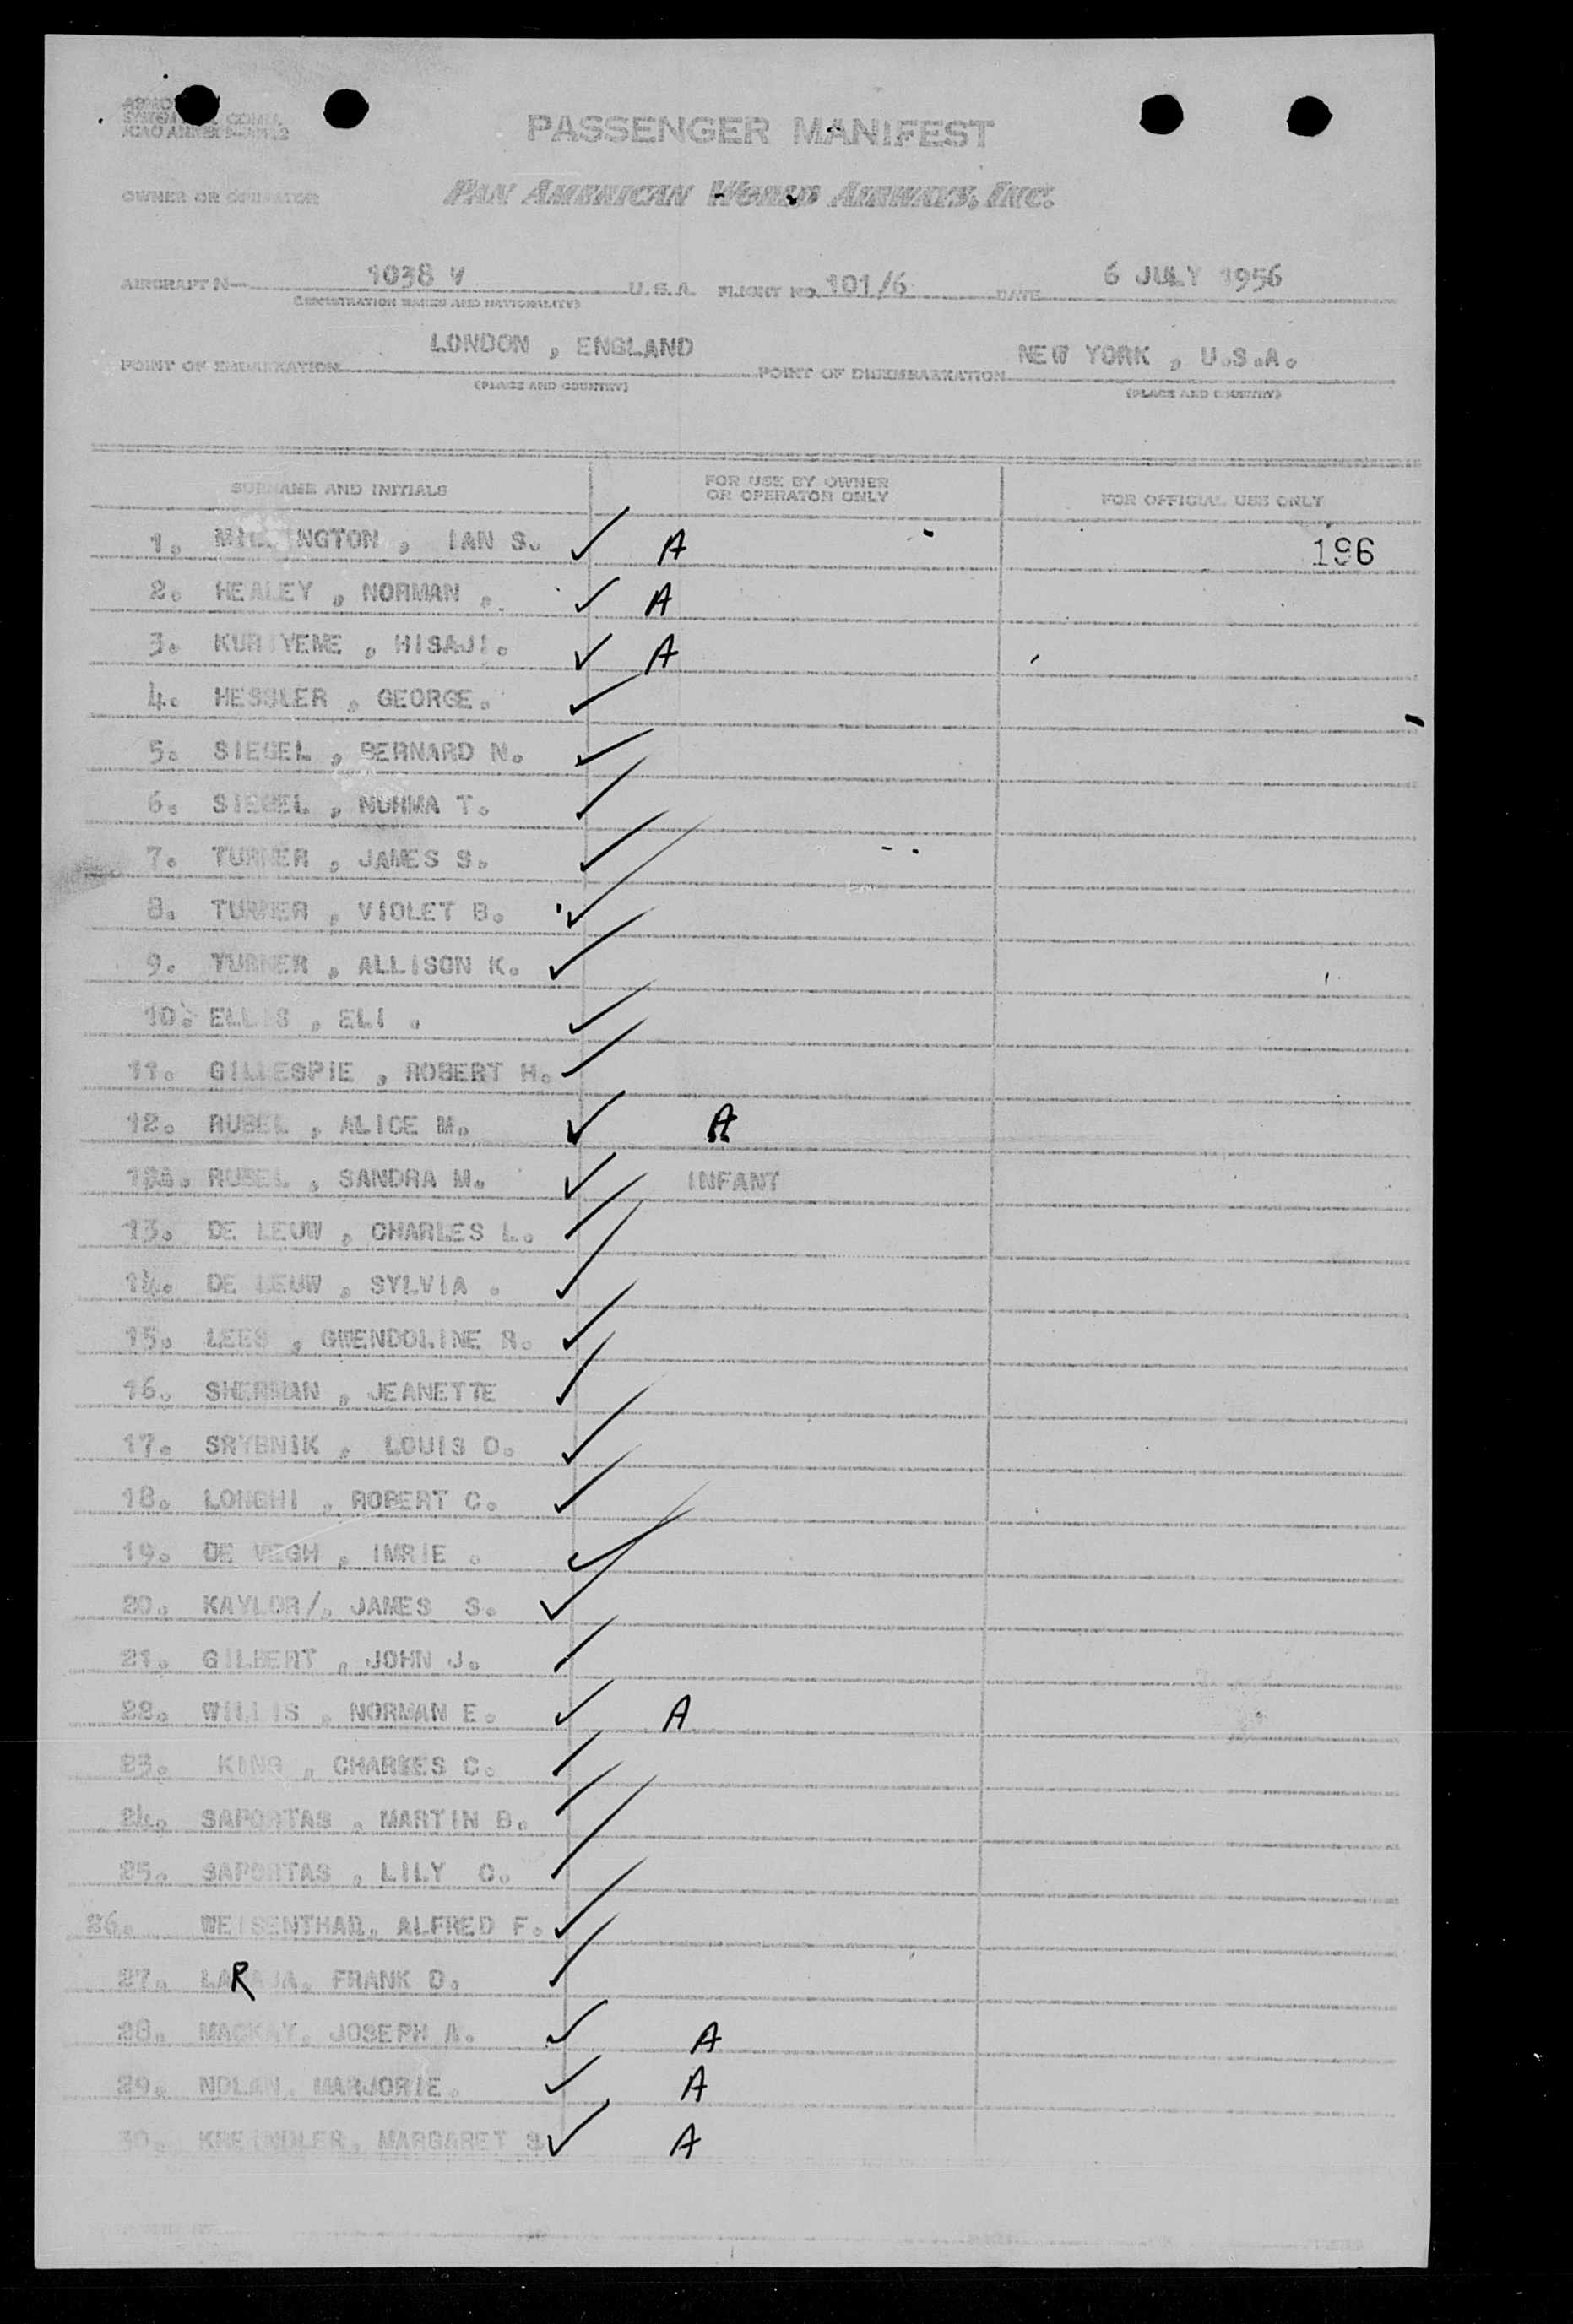 PASSENGER MANIFEST
OWNER OR OPERATOR PAN AMERICAN WORLD AIRWAYS, INC.
AIRCRAFT N— 1038 V U.S.A. FLIGHT NO. 101/6 DATE 6 JULY 1956
(REGISTRATION MARKS AND NATIONALITY)
POINT OF EMBARKATION LONDON , ENGLAND POINT OF DISEMBARKATION NEW YORK , U.S.A.
(PLACE AND COUNTRY) (PLACE AND COUNTRY)
SURNAME AND INITIALS FOR USE BY OWNER OR OPERATOR ONLY FOR OFFICIAL USE ONLY
1. IAN S. ✓ A 196
2. HEALEY , NORMAN . ✓ A
3. KURIYEME , HISAJI. ✓ A
4. HESSLER , GEORGE. ✓
5. SIEGEL , BERNARD N. ✓
6. SIEGEL , NORMA T. ✓
7. TURNER , JAMES S. ✓
8. TURNER , VIOLET B. ✓
9. TURNER , ALLISON K. ✓
10. ELLIS , ELI . ✓
11. GILLESPIE , ROBERT H. ✓
12. RUBEL , ALICE M. ✓ A
12a. RUBEL , SANDRA M. ✓ INFANT
13. DE LEUW , CHARLES L. ✓
14. DE LEUW , SYLVIA . ✓
15. LEES , GWENDOLINE R. ✓
16. SHERMAN , JEANETTE ✓
17. SRYBNIK , LOUIS D. ✓
18. LONGHI , ROBERT C. ✓
19. DE VEGH , IMRIE . ✓
20. KAYLOR/, JAMES S. ✓
21. GILBERT , JOHN J. ✓
22. WILLIS , NORMAN E. ✓ A
23. KING , CHARKES C. ✓
24. SAPORTAS , MARTIN B. ✓
25. SAPORTAS , LILY C. ✓
26. WEISENTHAL, ALFRED F. ✓
27. FRANK D. ✓
28. MACKAY, JOSEPH A. ✓ A
29. NOLAN, MARJORIE. ✓ A
30. KREINDLER, MARGARET S ✓ A